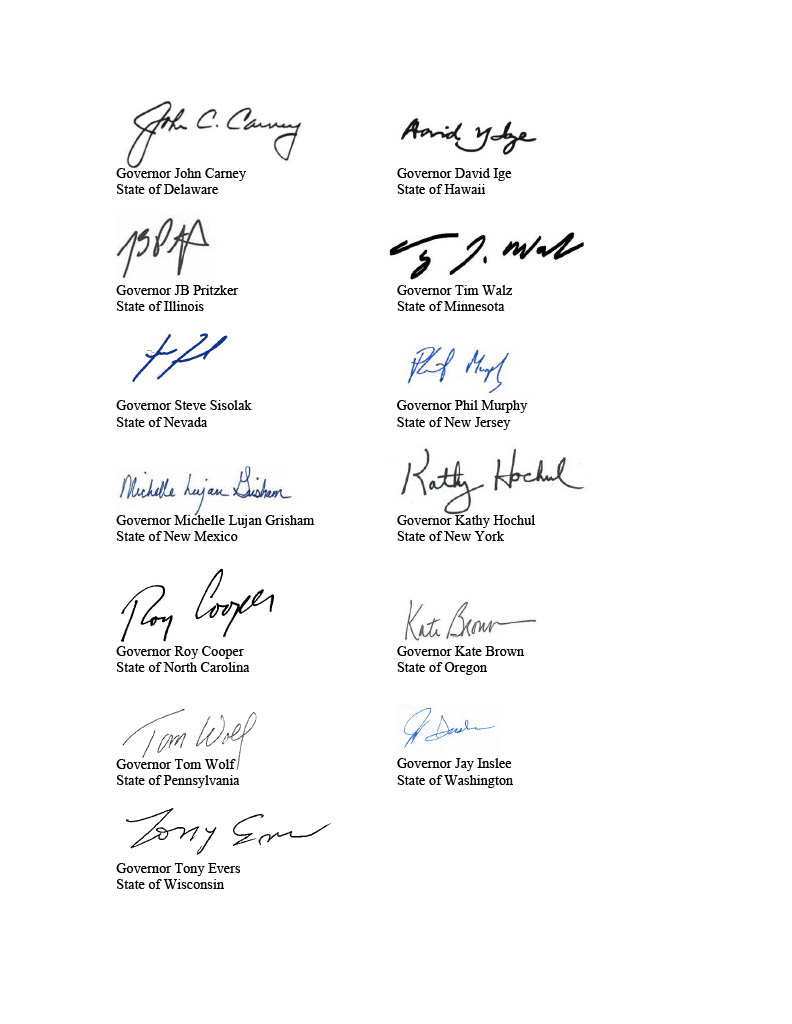 John C. Carney
Governor John Carney
State of Delaware
David Y. Ige
Governor David Ige
State of Hawaii
JB P
Governor JB Pritzker
State of Illinois
J. Walz
Governor Tim Walz
State of Minnesota
Governor Steve Sisolak
State of Nevada
Phil Murphy
Governor Phil Murphy
State of New Jersey
Michelle Lujan Grisham
Governor Michelle Lujan Grisham
State of New Mexico
Kathy Hochul
Governor Kathy Hochul
State of New York
Roy Cooper
Governor Roy Cooper
State of North Carolina
Kate Brown
Governor Kate Brown
State of Oregon
Tom Wolf
Governor Tom Wolf
State of Pennsylvania
Governor Jay Inslee
State of Washington
Tony Evers
Governor Tony Evers
State of Wisconsin